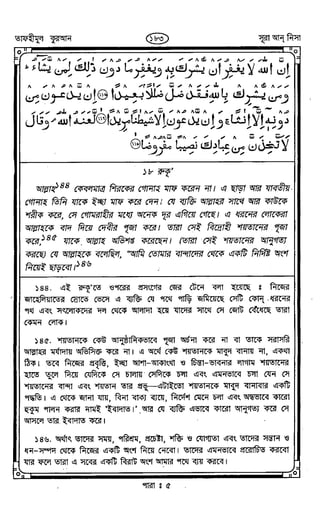 তাফহীমুল কুরআন
১৮৩
সূরা আন্ নিসা
إِنَّ اللهَ لَا يَغْفِرُ أَنْ يُشْرَكَ بِهِ وَيَغْفِرُ مَا دُونَ ذَٰلِكَ لِمَنْ يَشَاءُ ۚ
وَمَنْ يُشْرِكْ بِاللهِ فَقَدْ ضَلَّ ضَلَٰلًا بَعِيدًا ﴿١١٦﴾ إِنْ يَدْعُونَ مِنْ
دُونِهِ إِلَّا إِنَٰثًا ۚ وَإِنْ يَدْعُونَ إِلَّا شَيْطَٰنًا مَرِيدًا ﴿١١٧﴾ لَعَنَهُ اللهُ ۘ وَقَالَ
لَأَتَّخِذَنَّ مِنْ عِبَادِكَ نَصِيبًا مَفْرُوضًا ﴿١١٨﴾
১৮ রুকূ'
আল্লাহ১৪৪ কেবলমাত্র শিরকের গোনাহ মাফ করেন না। এ ছাড়া আর যাবতীয়
গোনাহ তিনি যাকে ইচ্ছা মাফ করে দেন। যে ব্যক্তি আল্লাহর সাথে আর কাউকে
শরীক করে, সে গোমরাহীর মধ্যে অনেক দূর এগিয়ে গেছে। এ ধরনের লোকেরা
আল্লাহকে বাদ দিয়ে দেবীর পূজা করে। তারা সেই বিদ্রোহী শয়তানের পূজা
করে,১৪৫ যাকে আল্লাহ অভিশপ্ত করেছেন। (তারা সেই শয়তানের আনুগত্য
করছে) যে আল্লাহকে বলেছিল, "আমি তোমার বান্দাদের থেকে একটি নির্দিষ্ট অংশ
নিয়েই ছাড়বো।১৪৬
১৪৪. এই রুকূ'তে ওপরের প্রসংগের জের টেনে বলা হয়েছে ঃ নিজের
জাহেলিয়াতের স্রোতে ভেসে এ ব্যক্তি যে পথে পাড়ি জমিয়েছে সেটি কোন্ ধরনের
পথ এবং সৎলোকদের দল থেকে আলাদা হয়ে যাদের সাথে সে জোট বেঁধেছে তারা
কেমন লোক।
১৪৫. শয়তানকে কেউ আনুষ্ঠানিকভাবে পূজা অর্চনা করে না বা তাকে সরাসরি
আল্লাহর মর্যাদায় অভিসিক্ত করে না। এ অর্থে কেউ শয়তানকে মাবুদ বানায় না, একথা
ঠিক। তবে নিজের প্রবৃত্তি, ইচ্ছা আশা-আকাংখা ও চিন্তা-ভাবনার লাগাম শয়তানের
হাতে তুলে দিয়ে যেদিকে সে চালায় সেদিকে চলা এবং এমনভাবে চলা যেন সে
শয়তানের বান্দা এবং শয়তান তার প্রভু—এটাইতো শয়তানকে মাবুদ বানাবার একটি
পদ্ধতি। এ থেকে জানা যায়, বিনা বাক্য ব্যয়ে, নির্দেশ মেনে চলা এবং অন্ধভাবে কারো
হুকুম পালন করার নামই 'ইবাদাত।' আর যে ব্যক্তি এভাবে কারো আনুগত্য করে সে
আসলে তার ইবাদাত করে।
১৪৬. অর্থাৎ তাদের সময়, পরিশ্রম, প্রচেষ্টা, শক্তি ও যোগ্যতা এবং তাদের সন্তান ও
ধন-সম্পদ থেকে নিজের একটি অংশ নিয়ে নেবো। তাদের এমনভাবে প্ররোচিত করবো
যার ফলে তারা এ সবের একটি বিরাট অংশ আমার পথে ব্যয় করবে।
পারা ঃ ৫